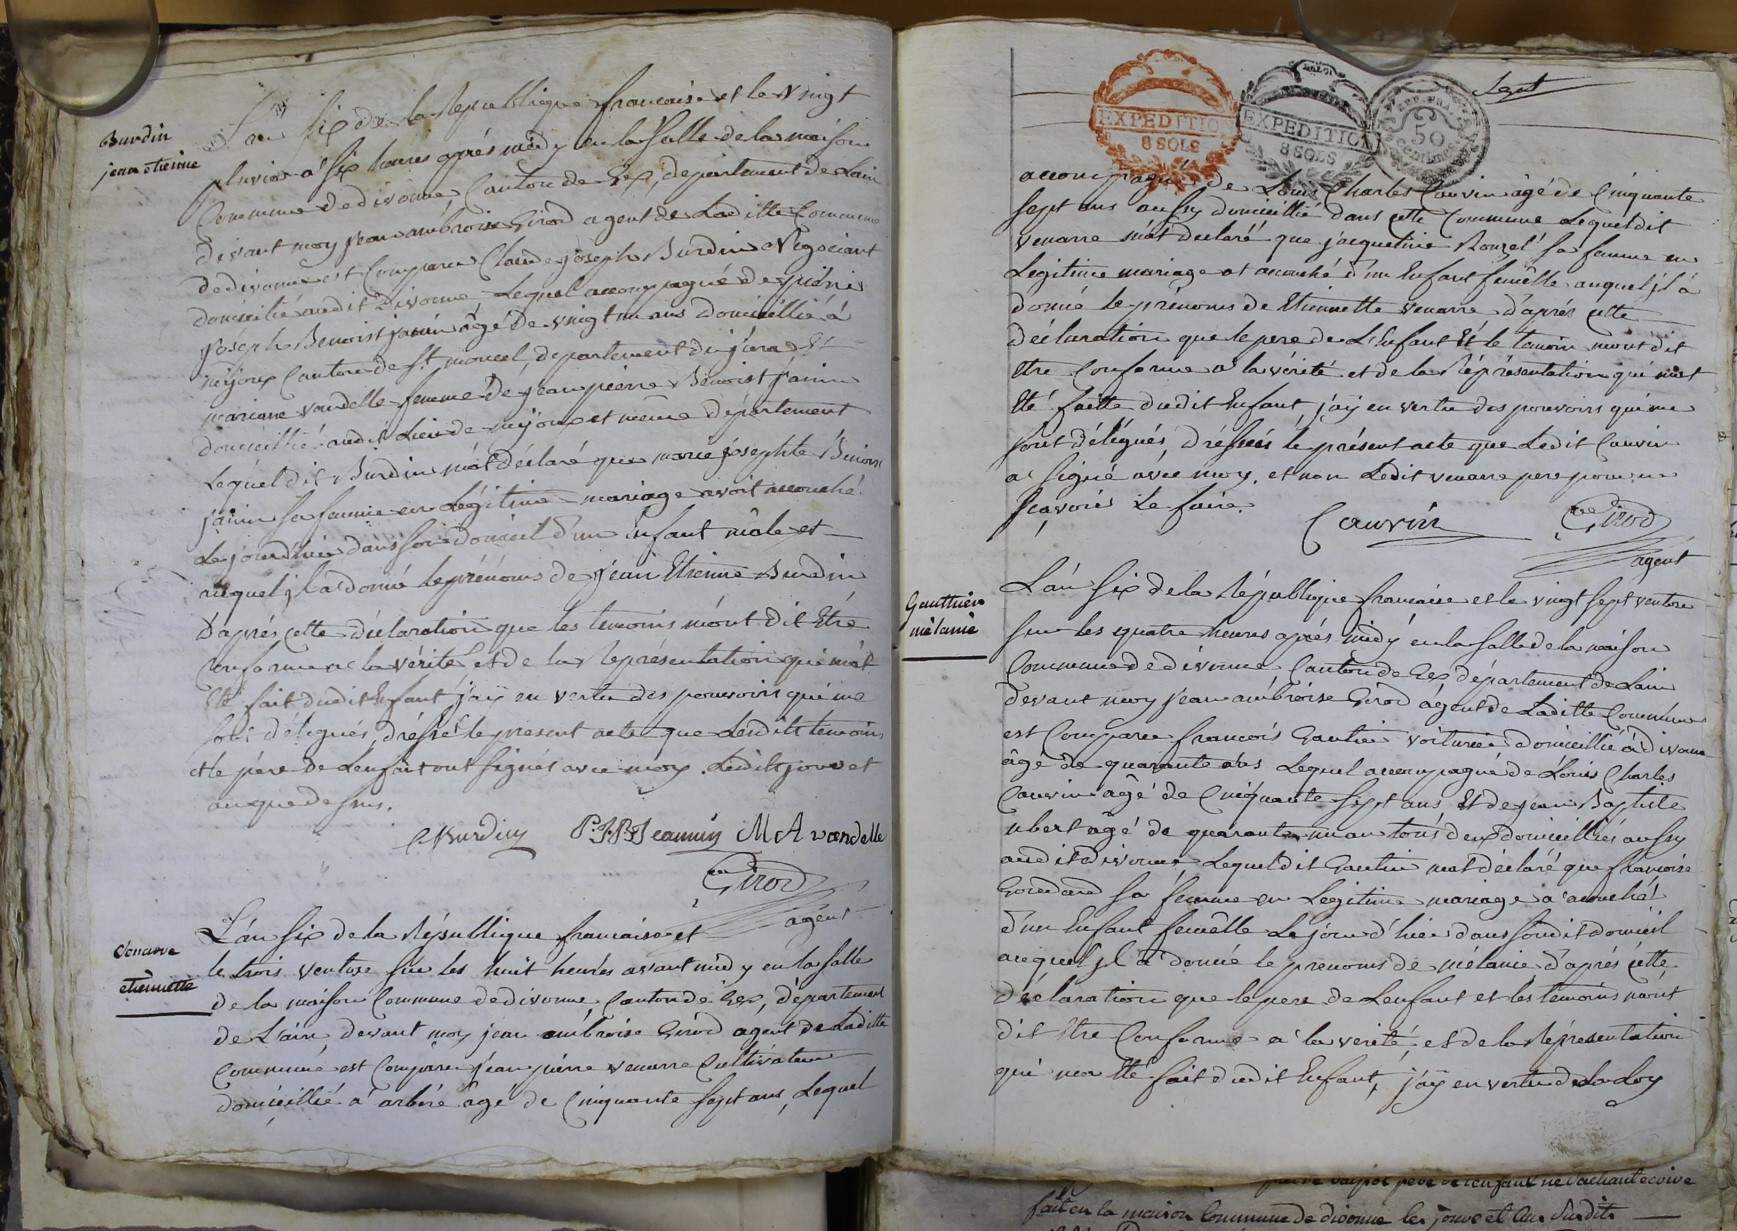 Burdin
jean etienne
L'an six de la Republique francaise et le vingt
pluviose a six heures après midy en la salle de la maison
Commune de divonne, Canton de Gex, département de Lain
devant moy jean ambroise Girod agent de Laditte Commune
de divonne est Comparu Claude joseph Burdin Négociant
domicilié audit Divonne Lequel accompagné de pierre
joseph Benoist janin âgé de vingt ans domicillié à
mijoux Canton de St. , département du jura Et
mariane vandelle femme de jean pierre Benoist janin
domicillié audit Lieu de mijoux et même département
Lequel dit Burdin m'at déclaré que marie josephte Benoist
janin sa femme en Légitime mariage avoit accouché
Le jourd'hui dans son domicil d'un Enfant mâle et
auquel jl a donné le prénoms de jean Etienne Burdin
d'aprés cette déclaration que les temoins m'ont dit Etre
conforme a la vérité et de la Représentation qui m'at
Eté fait dudit Enfant j'aÿ en vertu des pouvoirs qui me
sont délégués, dréssé le présent acte que Lesdits temoins
et le pére de Lenfant ont signés avec moy. Lesdits jour et
an que dessus.
CBurdin PJBJeannin MA vandelle
Girod
agent
Venarre
etiennette
L'an six de la République francaise et
le trois ventose sur les huit heures avant midy en la salle
de la maison Commune de divonne, Canton de Gex, département
de L'ain, devant moy jean ambroise Girod agent de Laditte
Commune est Comparu jean pierre venarre Cultivateur
domicillié a arbere âgé de Cinquante sept ans, Lequel
Sept
EXPEDITION
8 SOLS
EXPEDITION
8 SOLS
REP. FRA.
50
Centimes
accompagné de Louis Charles Cauvin âgé de Cinquante
sept ans aussy domicillié dans cette Commune Lequel dit
venarre m'at declaré que jacqueline Rouzel sa femme en
Legitime mariage at accouché d'un Enfant femelle auquel jl à
donné le prénoms de Etiennette venarre d'aprés cette
déclaration que le pere de L'Enfant Et le temoin m'ont dit
Etre Conforme a la vérité et de la Répresentation qui m'at
Eté faitte dudit Enfant, j'aÿ en vertu des pouvoirs qui me
sont délégués, dréssés le présent acte que Ledit Cauvin
a signé avec moy. et non Ledit venarre pere pour ne
sçavoir Le faire.
Cauvin Girod
agent
Gauthier
mélanie
L'an six de la République francaise et le vingt sept ventose
sur les quatre heures aprés midy en la salle de la maison
Commune de divonne, Canton de Gex, département de Lain
devant moy jean ambroise Girod agent de Laditte Commune
est Comparu francois Gautier voiturier domicillié à divonne
âge de quarante ans Lequel accompagné de Louis Charles
Cauvin âgé de Cinquante sept ans Et de jean Baptiste
ubert âgé de quarante un an tous deux domicilliés aussy
audit divonne, Lequel dit Gautier m'at déclaré que françoise
sa femme en Legitime mariage a accouché
d'un Enfant femelle Le jour d'hier dans sondit domicil
auquel jl a donné le prenoms de mélanie d'aprés cette
déclaration que le pere de Lenfant et les temoins m'ont
dit Etre Conforme a la verité, et de la Répresentation
qui m'a Eté fait dudit Enfant, j'aÿ en vertu de la Loy
pere de Lenfant ne Sachant ecrire
fait en la maison Commune de divonne les jours et an susdits